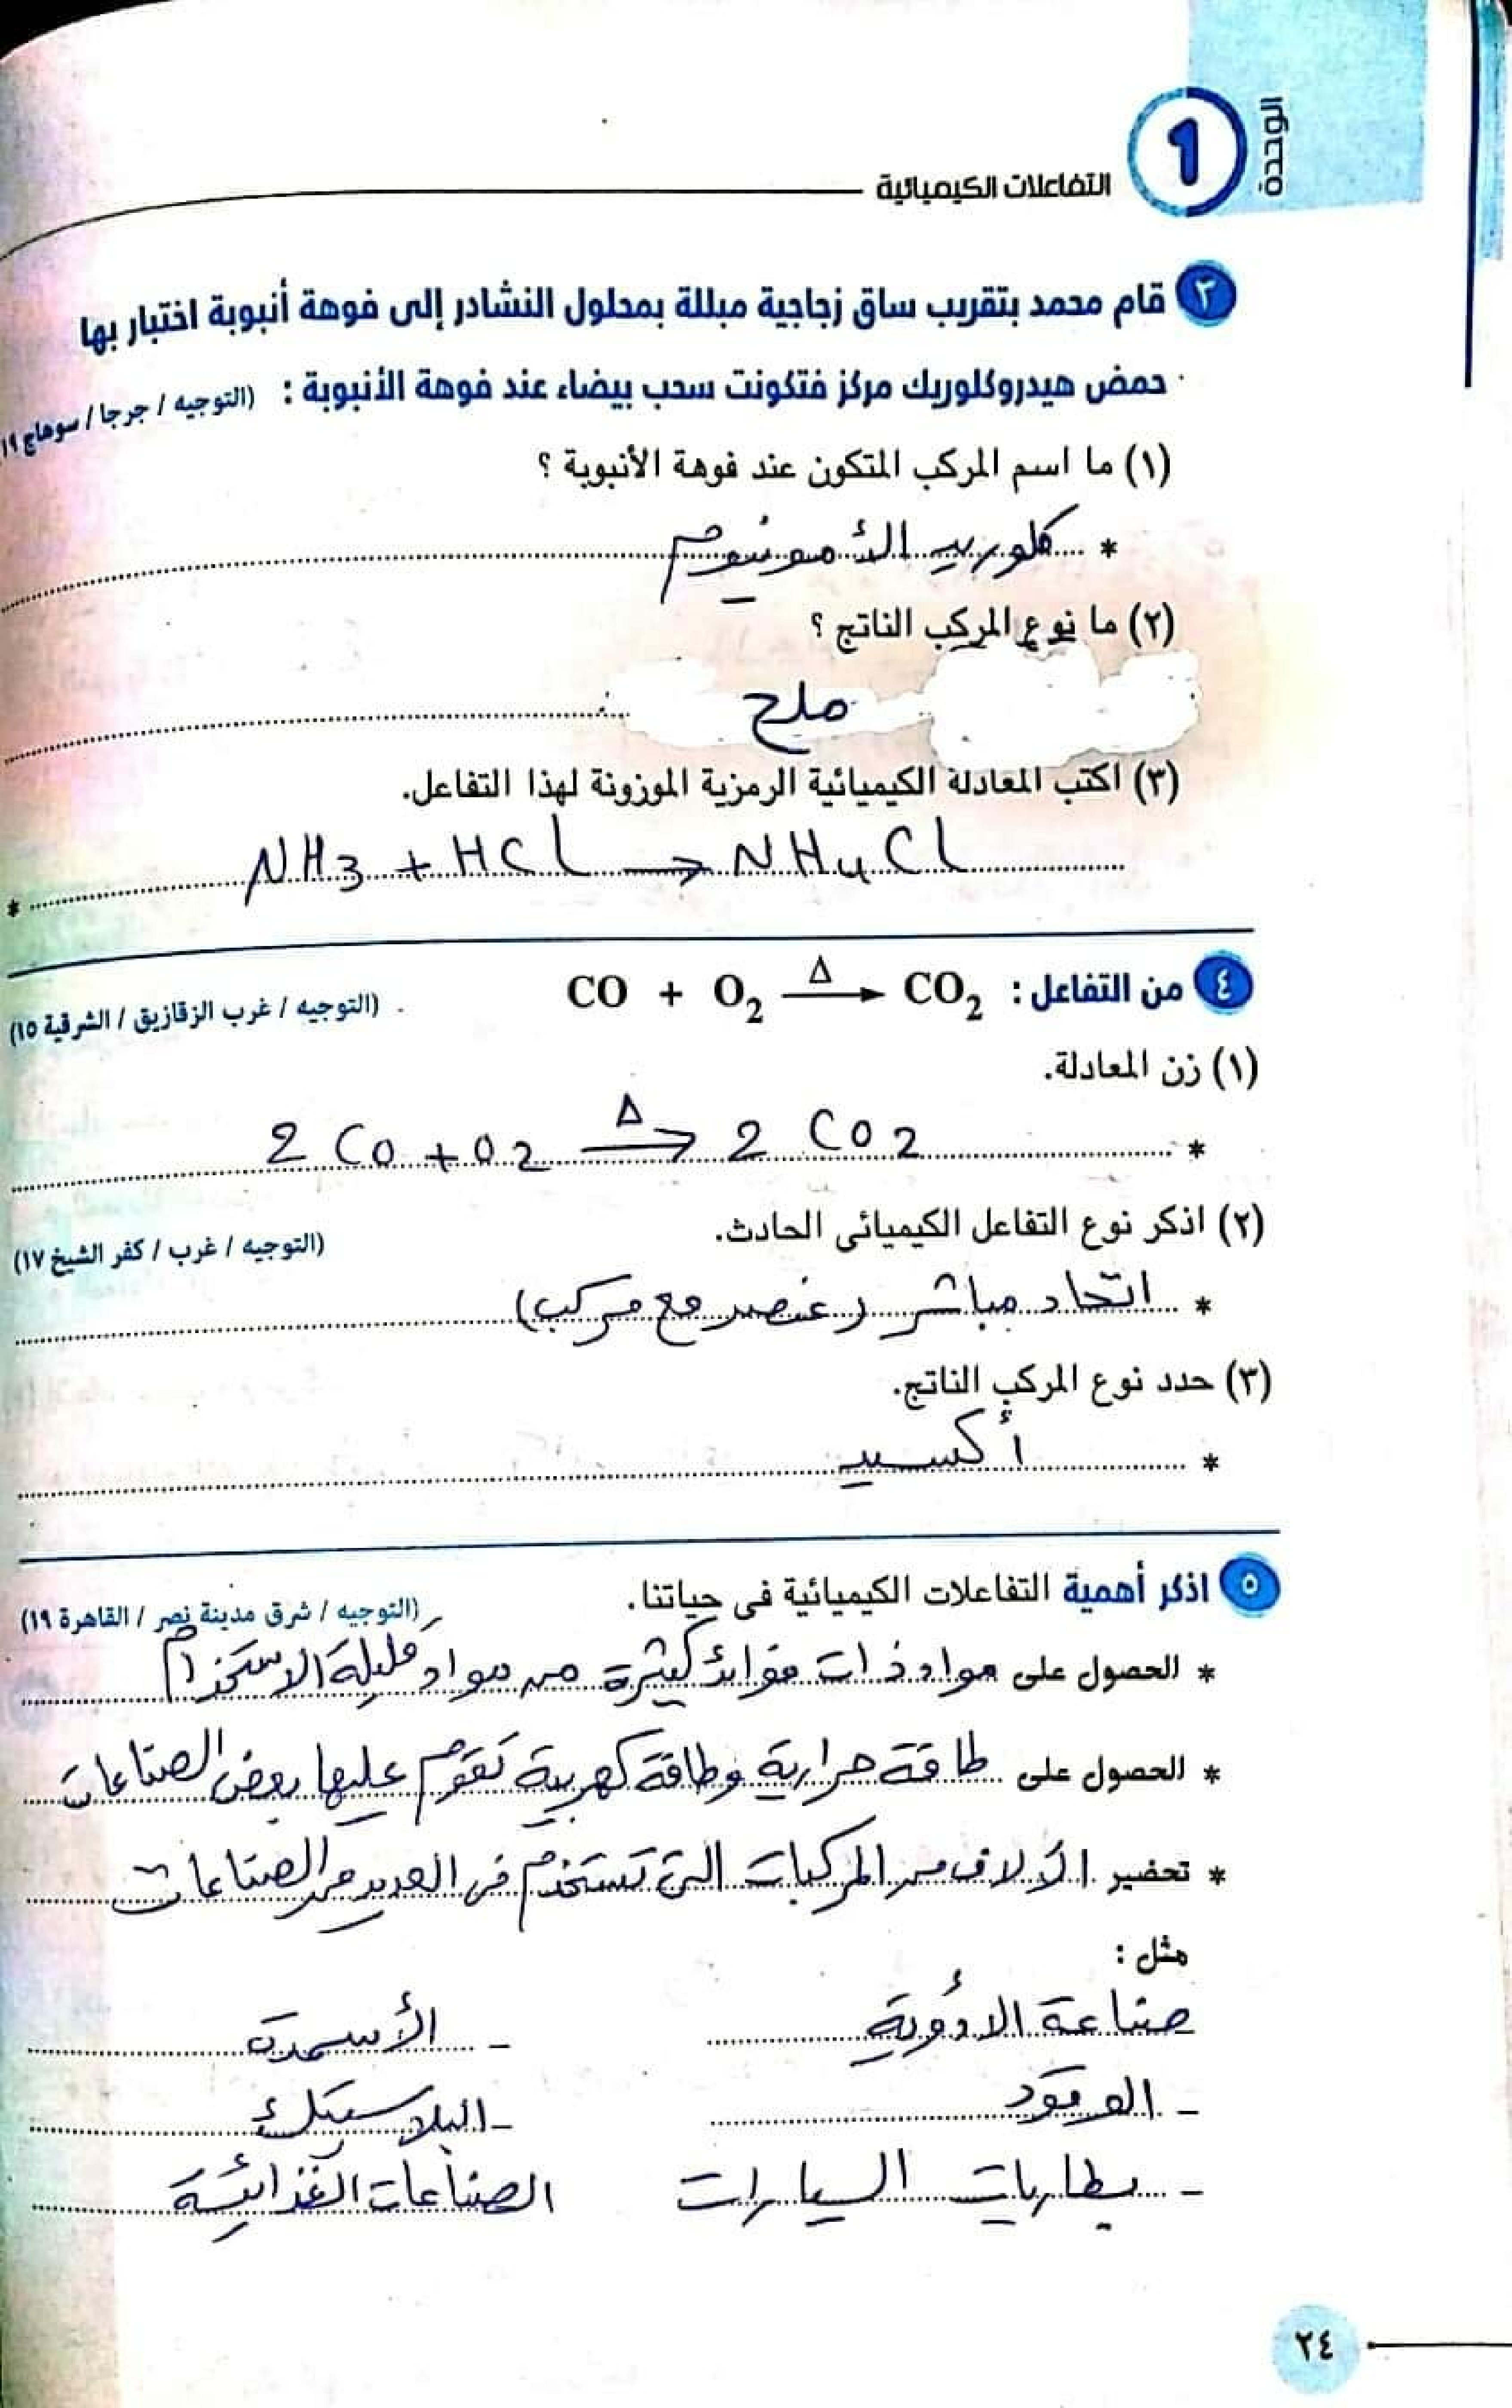 الوحدة
1
التفاعلات الكيميائية
٣ قام محمد بتقريب ساق زجاجية مبللة بمحلول النشادر إلى فوهة أنبوبة اختبار بها
حمض هيدروكلوريك مركز فتكونت سحب بيضاء عند فوهة الأنبوبة : (التوجيه / جرجا / سوهاج ١٩
(١) ما اسم المركب المتكون عند فوهة الأنبوبة ؟
* كلوريد الأمونيوم
(٢) ما نوع المركب الناتج ؟
ملح
(٣) اكتب المعادلة الكيميائية الرمزية الموزونة لهذا التفاعل.
NH3 + HCl → NH4Cl *
٤ من التفاعل : CO + O₂ —Δ→ CO₂ (التوجيه / غرب الزقازيق / الشرقية ١٥)
(١) زن المعادلة.
* 2 CO + O2 —Δ→ 2 CO2
(٢) اذكر نوع التفاعل الكيميائى الحادث. (التوجيه / غرب / كفر الشيخ ١٧)
* اتحاد مباشر (عنصر مع مركب)
(٣) حدد نوع المركب الناتج.
* أكسيد
٥ اذكر أهمية التفاعلات الكيميائية فى حياتنا. (التوجيه / شرق مدينة نصر / القاهرة ١٩)
* الحصول على مواد ذات فوائد كثيرة من مواد قليلة الاستخدام
* الحصول على طاقة حرارية وطاقة كهربية تقوم عليها بعض الصناعات
* تحضير الآلاف من المركبات التى تستخدم فى العديد من الصناعات
مثل :
صناعة الادوية - الأسمدة
- الوقود - البلاستيك
- بطاريات السيارات الصناعات الغذائية
٢٤